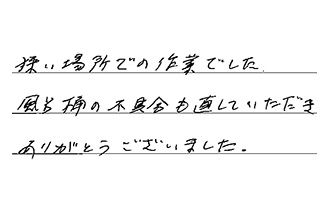 狭い場所での作業でした
風呂桶の不具合も直していただき
ありがとうございました。